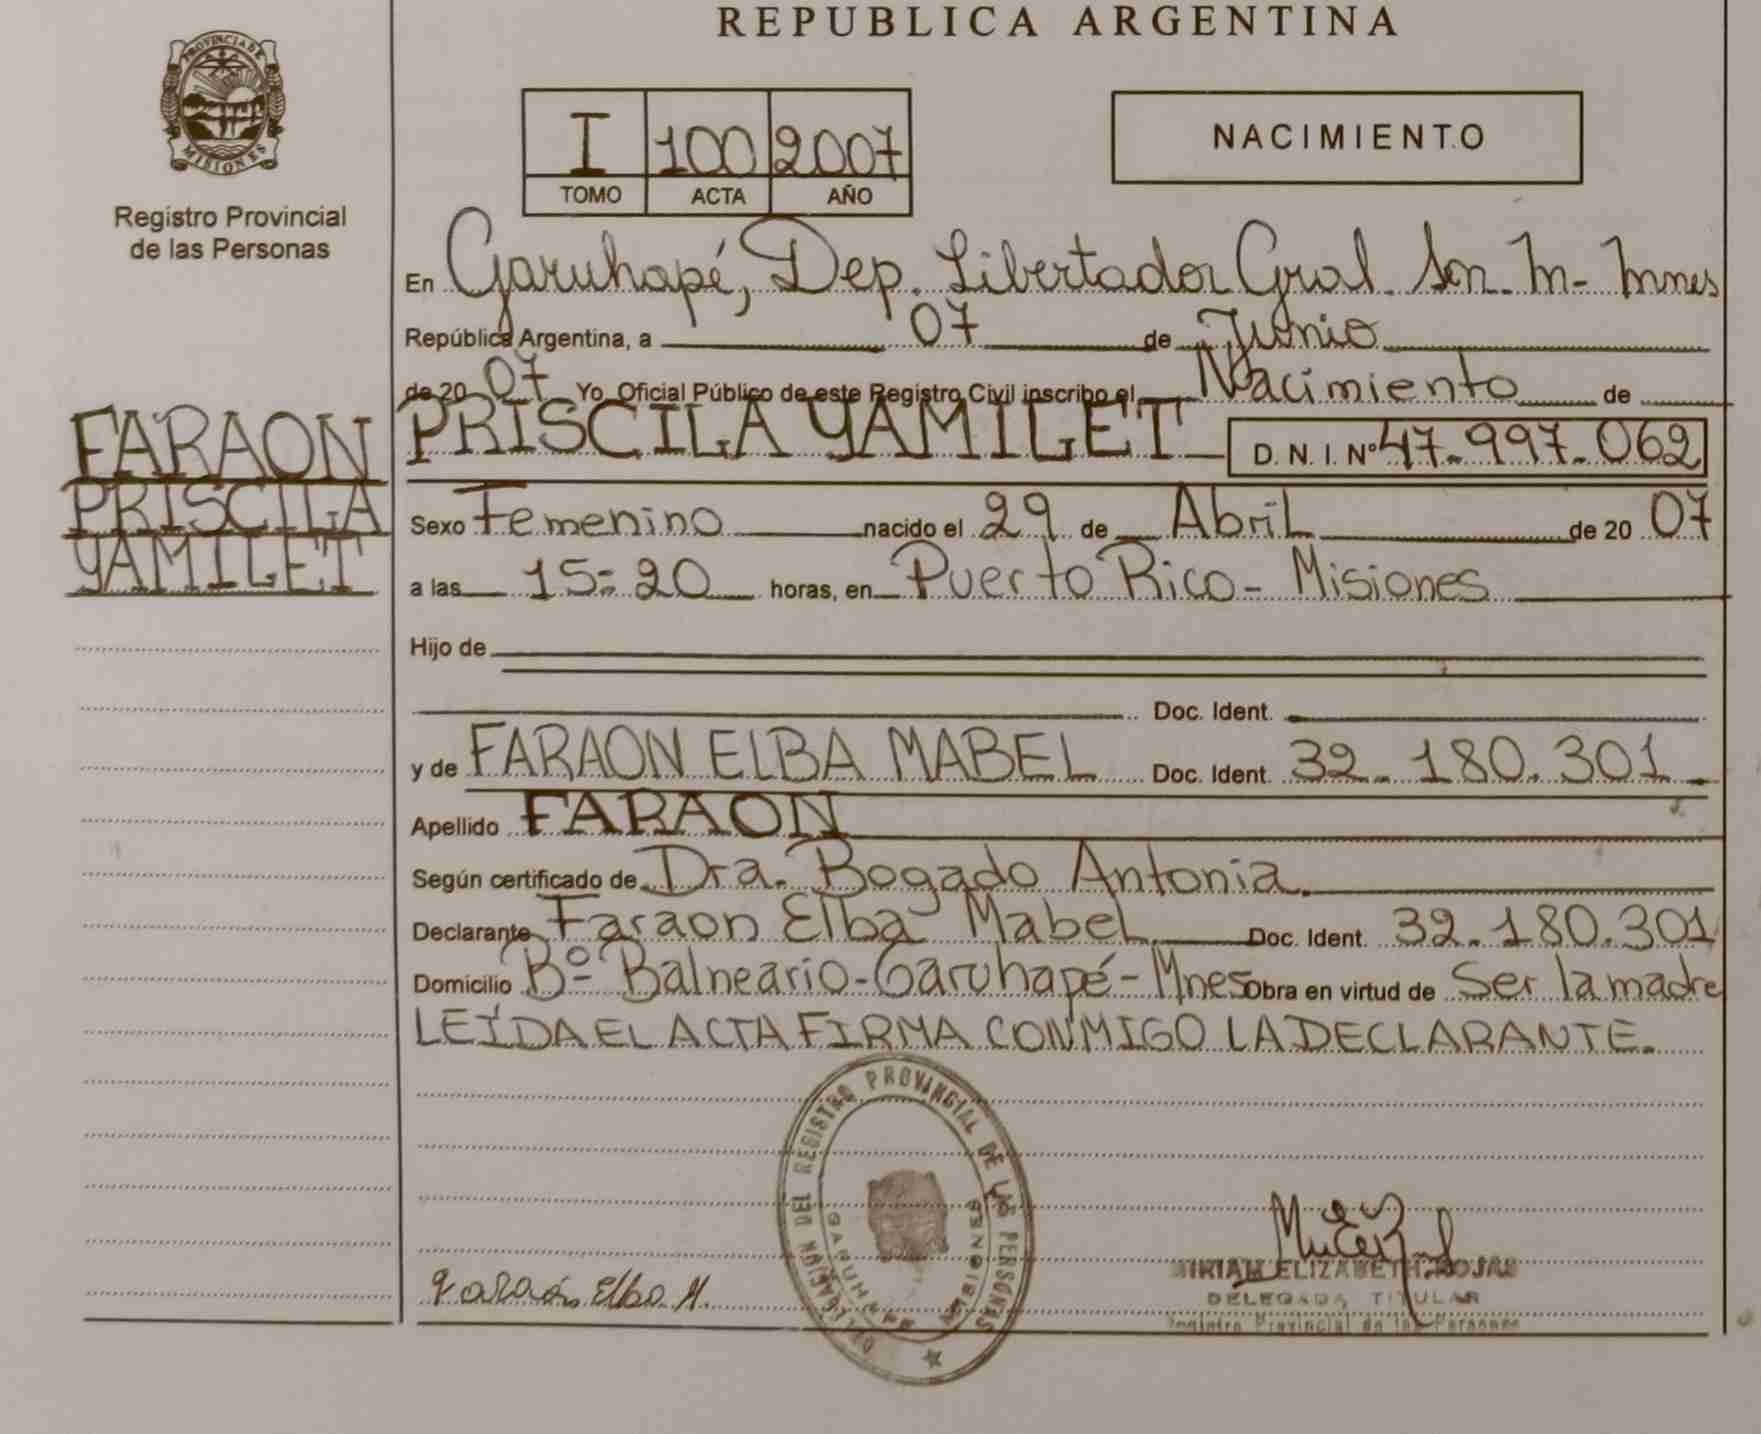 REPUBLICA ARGENTINA
PROVINCIA DE
MISIONES
Registro Provincial
de las Personas
I 100 2007
TOMO ACTA AÑO
NACIMIENTO
En Garuhapé, Dep. Libertador Gral. San. M- Mnes
República Argentina, a 07 de Junio
de 20 07 Yo Oficial Público de este Registro Civil inscribo el Nacimiento de
FARAON
PRISCILA
YAMILET
PRISCILA YAMILET D. N. I. Nº 47.997.062
Sexo Femenino nacido el 29 de Abril de 20 07
a las 15:20 horas, en Puerto Rico - Misiones
Hijo de
Doc. Ident.
y de FARAON ELBA MABEL Doc. Ident. 32.180.301
Apellido FARAON
Según certificado de Dra. Bogado Antonia.
Declarante Faraon Elba Mabel Doc. Ident. 32.180.301
Domicilio Bº Balneario-Garuhapé-Mnes Obra en virtud de Ser la madre
LEÍDA EL ACTA FIRMA CONMIGO LA DECLARANTE.
DELEGACION DEL REGISTRO PROVINCIAL DE LAS PERSONAS
GARUHAPE MISIONES
Faraón Elba M.
MIRIAM ELIZABETH ROJAS
DELEGADA TITULAR
Registro Provincial de las Personas